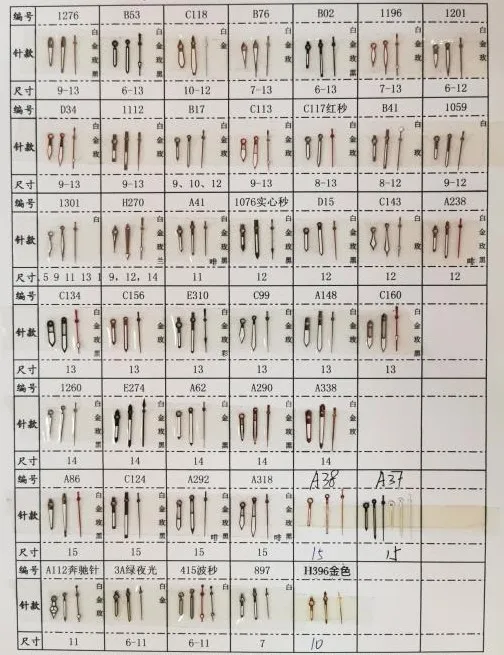 编号 1276 B53 C118 B76 B02 1196 1201
针款 白金玫黑 白金玫黑 白金 白金玫 白金玫黑 白金玫 白金玫
尺寸 9-13 6-13 10-12 7-13 6-13 7-13 6-12
编号 D34 1112 B17 C113 C117红秒 B41 1059
针款 白金玫 白金玫 白金玫 白金玫 白金玫 白金玫 白金玫
尺寸 9-13 9-13 9、10、12 9-13 8-13 8-12 9-12
编号 1301 H270 A41 1076实心秒 D15 C143 A238
针款 白 白金玫兰 白金玫黑啡 白金玫黑 白金玫黑 白金玫 白金玫黑啡
尺寸 .5 9 11 13 1 9，12，14 11 12 12 12 12
编号 C134 C156 E310 C99 A148 C160
针款 白金玫黑 白金玫 白金玫彩 白金玫 白金玫黑 白金玫黑
尺寸 13 13 13 13 13 13
编号 1260 E274 A62 A290 A338
针款 白金玫黑 白金玫黑 白金玫黑 白金玫黑 白金玫黑
尺寸 14 14 14 14 14
编号 A86 C124 A292 A318 A38 A37
针款 白金玫黑 白金玫黑 白金玫黑啡 白金玫黑啡
尺寸 15 15 15 15 15 15
编号 A112奔驰针 3A绿夜光 415波秒 897 H396金色
针款 白金玫黑 白金 白金玫黑 白金玫黑
尺寸 11 6-11 6-11 7 10